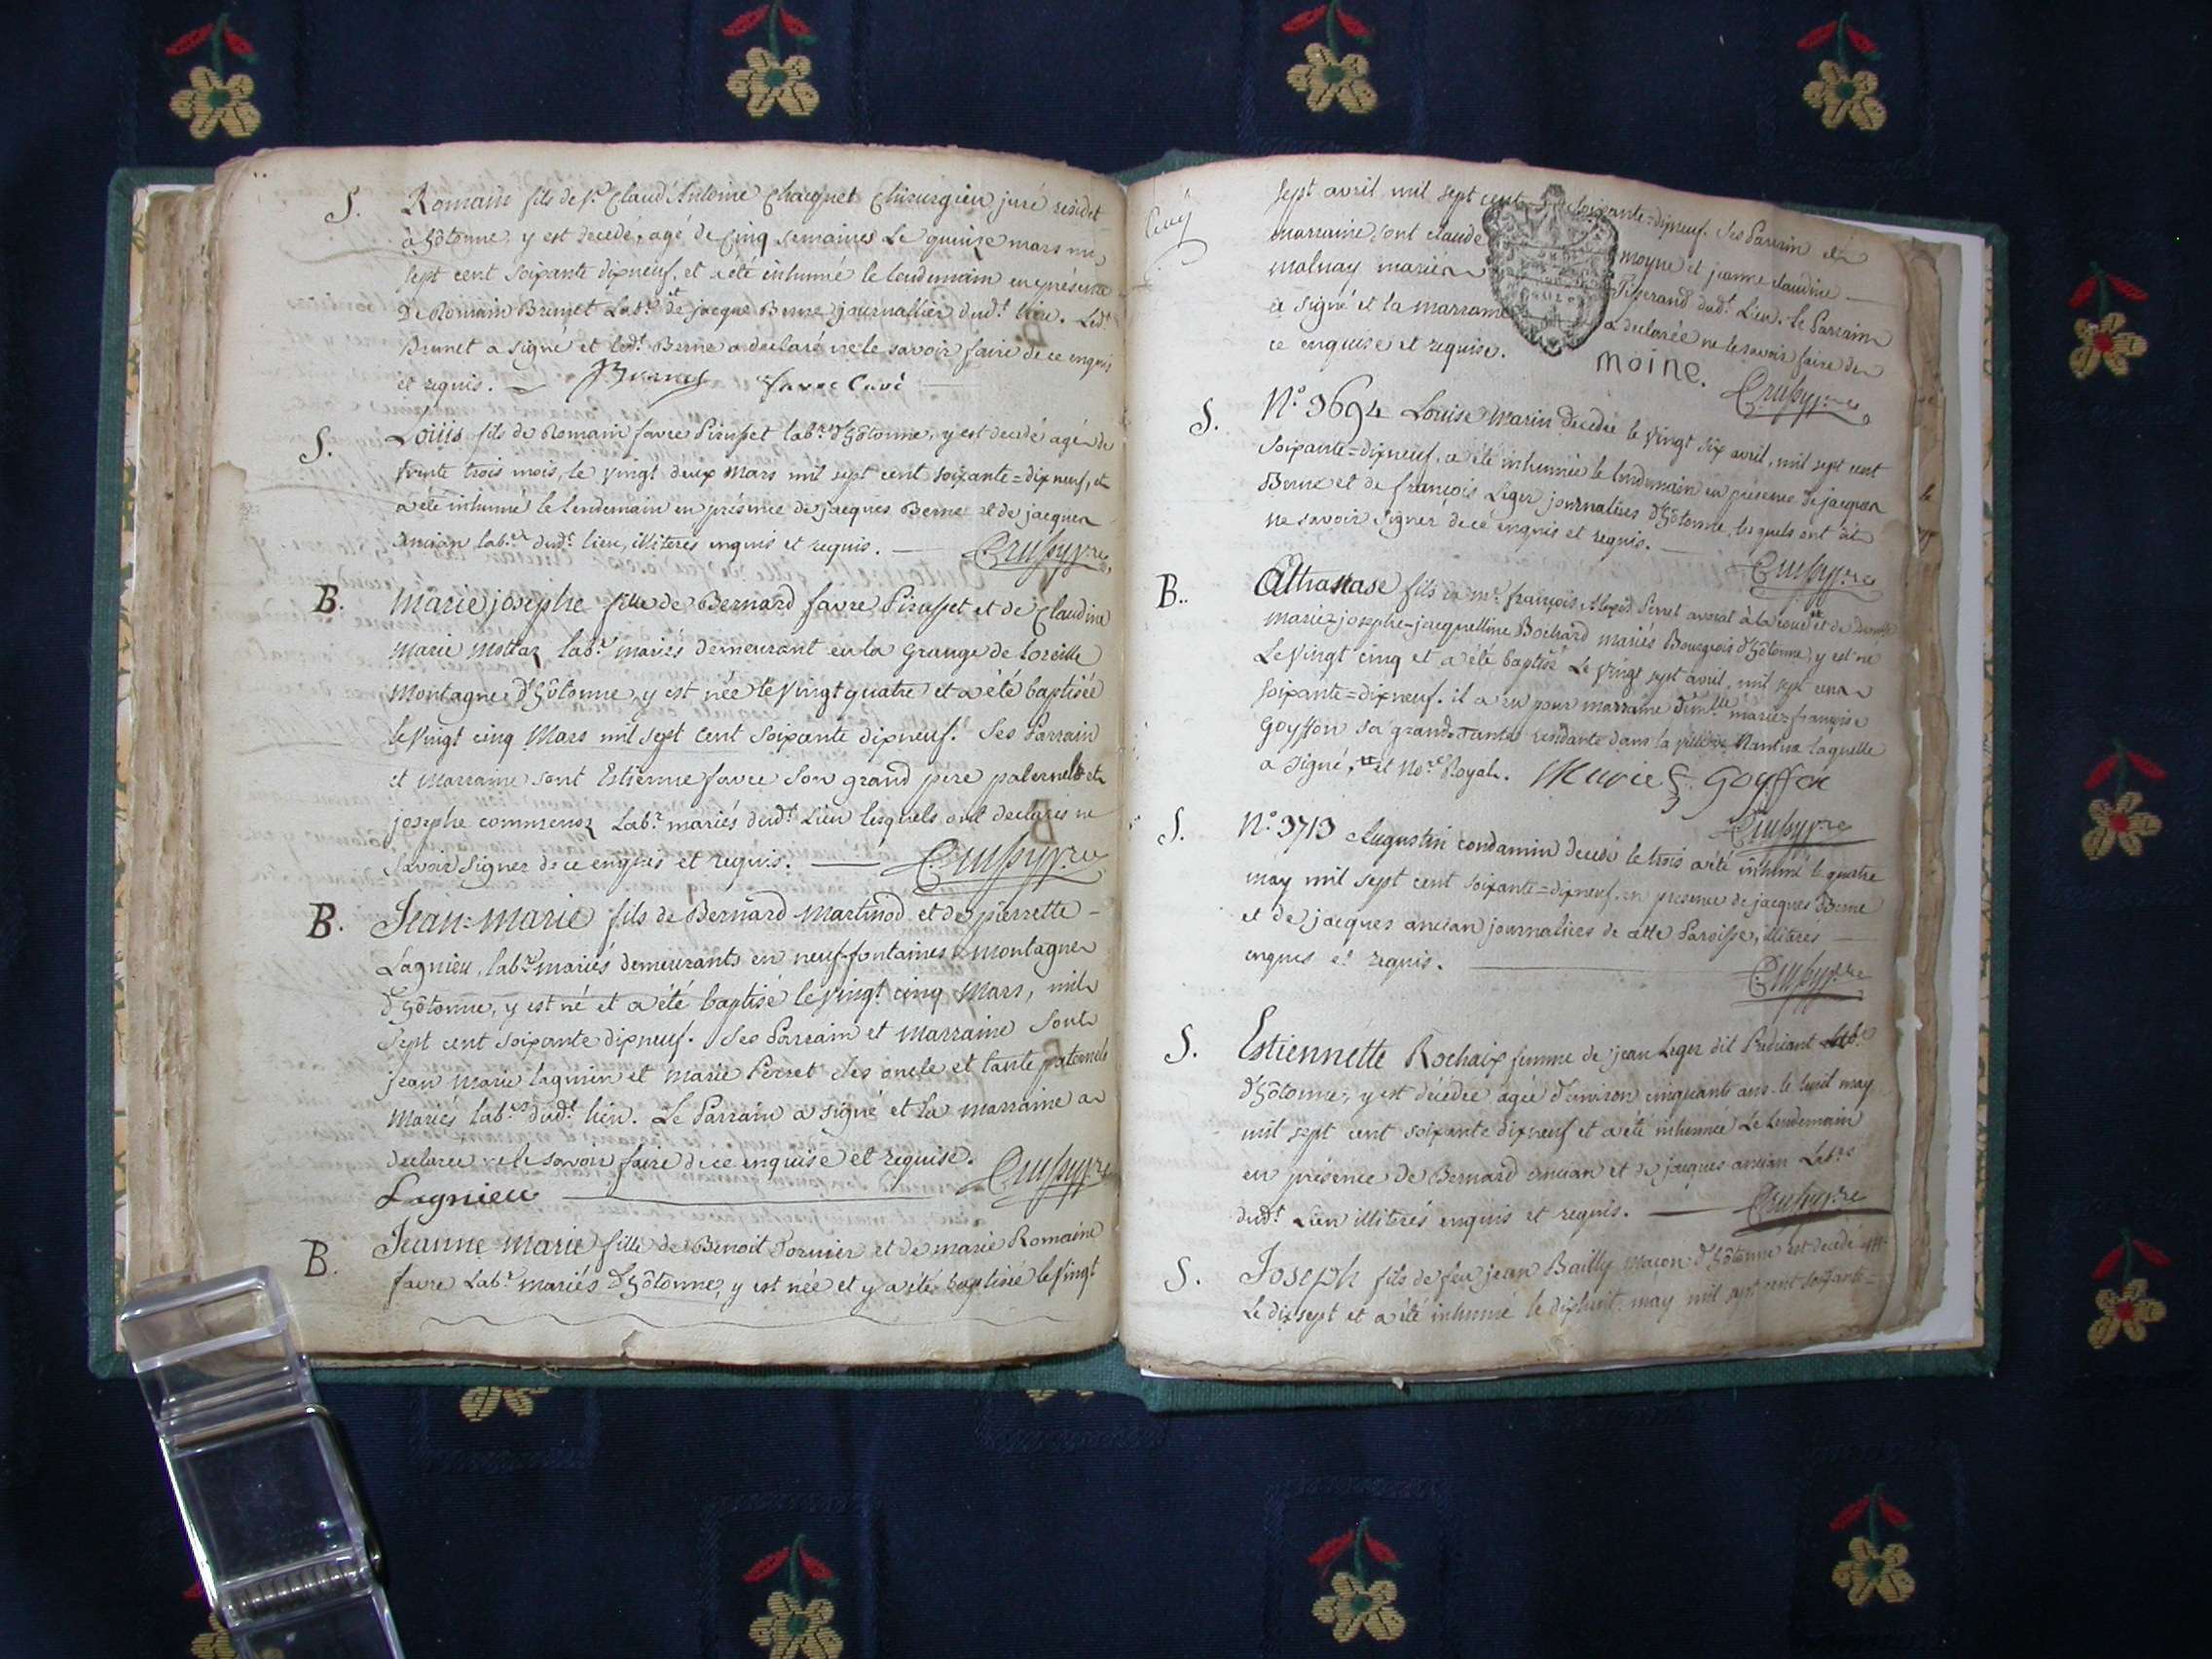 S. Romain fils de Sr Claud'Antoine Chacquet Chirurgien juré résidet
à hôtonne, y est decedé, agé de cinq semaines Le quinze mars mil
sept cent soixante dixneuf, et a été inhumé le lendemain en présence
De Romain Brunet Labr. et de jacque Berne journallier dudt. lieu. Ledt.
Brunet a signé et ledt. Berne a declaré ne le savoir faire de ce enquis
et requis. Brunet favre Curé
S. Loüis fils de Romain favre Pirusset labr. d'hôtonne, y est decedé agé de
trente trois mois, le vingt deux Mars mil sept cent soixante=dix neuf, et
a été inhumé le lendemain en présence de jacques Berne et de jacques
ancian labrs. dudt. lieu, illiteres enquis et requis.
B. Marie josephe fille de Bernard favre Pirusset et de Claudine
Marie Mottaz labrs. mariés demeurant en la Grange de
Montagne d'hôtonne, y est née le vingt quatre et a été baptisée
le vingt cinq Mars mil sept cent soixante dixneuf. Ses Parrain
et Marraine sont Estienne favre son grand pere paternel et
josephe labrs. mariés dudt. Lieu lesquels ont declarés ne
savoir signer de ce enquis et requis.
B. Jean-Marie fils de Bernard Martinod et de pierrette
Lagnieu, labrs. mariés demeurants en neuf-fontaines montagne
d'hôtonne, y est né et a été baptisé le vingt cinq Mars, mil
sept cent soixante dixneuf. Ses Parrain et Marraine sont
jean Marie lagnieu et Marie Perret ses oncle et tante paternels
Mariés labrs. dudt. lieu. Le Parrain a signé et la marraine a
declarée ne le savoir faire de ce enquise et requise.
Lagnieu
B. Jeanne Marie fille de Benoit et de marie Romaine
favre Labrs. mariés d'hôtonne, y est née et y a été baptisée le vingt
sept avril mil sept cent soixante=dixneuf. Ses Parrain et
marraine sont claude moyne et jeanne claudine
Malnay mariés Tisserand dudt. Lieu. le Parrain
a signé et la marraine a declarée ne le savoir faire de
ce enquise et requise. moine.
S. No. 3694 Louise Marin decedée le vingt six avril, mil sept cent
soixante=dixneuf, a été inhumée le lendemain en présence de jacques
Berne et de françois Leger journaliers d'hôtonne, lesquels ont dit
ne savoir signer de ce enquis et requis.
B. Athanase fils de mr. françois Perret avocat à la cour et de
Marie-josephe-jacquelline Bochard mariés Bourgeois d'hôtonne, y est né
Le vingt cinq et a été baptisé Le vingt sept avril, mil sept cent
soixante=dixneuf. il a eu pour marraine Demlle. marie-françoise
Goyffon sa grand-Tante résidante dans la ville de Nantua laquelle
a signé, et Nore. Royal. Marie f. Goyffon
S. No. 3713 Augustin condamin decedé le trois a été inhumé le quatre
may mil sept cent soixante=dixneuf, en présence de jacques Berne
et de jacques ancian journaliers de cette Paroisse, illiteres
enquis et requis.
S. Estiennette Rochaix femme de jean Leger dit Labr.
d'hôtonne, y est décédée agée d'environ cinquante ans, le huit may
mil sept cent soixante dixneuf et a été inhumée Le lendemain
en présence de Bernard ancian et de jacques ancian Labrs.
dudt. Lieu illiterés enquis et requis.
S. Joseph fils de feu jean Bailly maçon d'hôtonne est decedé
Le dixsept et a été inhumé le dixhuit may mil sept cent soixante=